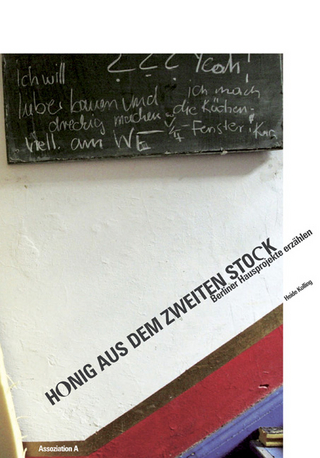 Ich will ??? Yeah!
lieber bauen und ich mach
dreckig machen die Küchen-
viell. am WE Fenster!
HONIG AUS DEM ZWEITEN STOCK
Berliner Hausprojekte erzählen
Heide Kolling
Assoziation A